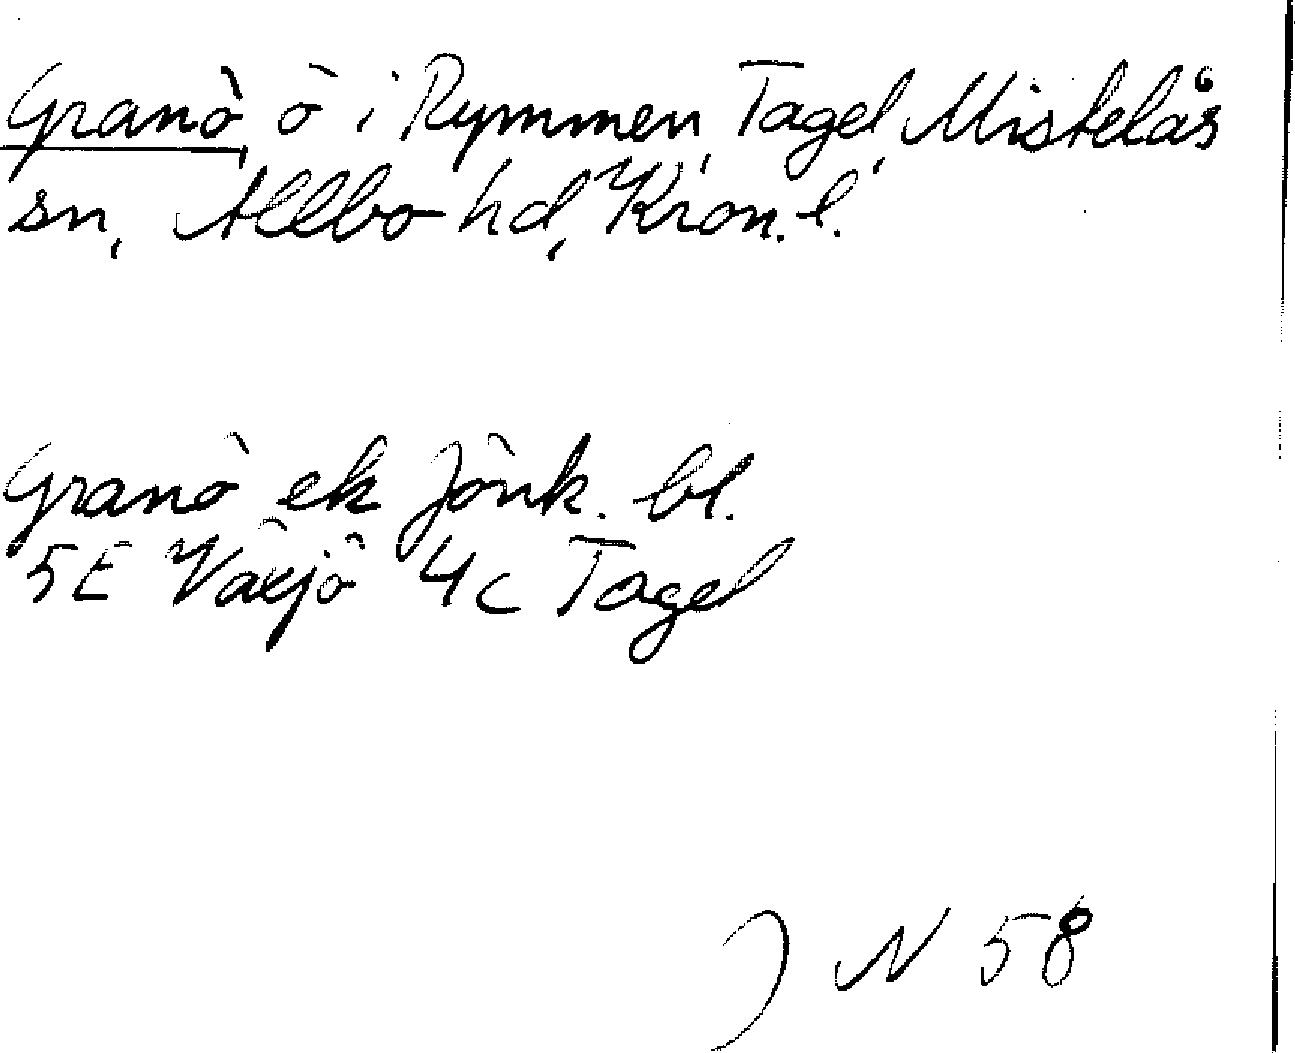 Granö, ö i Rymmen, Tagel, Mistelås
sn, Allbo hd, Kron. l.
Granö ek Jönk. bl.
5E Växjö 4c Tagel
J N 58